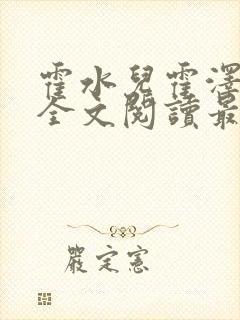 霍水兒霍澤
全文閱讀最
嚴定憲